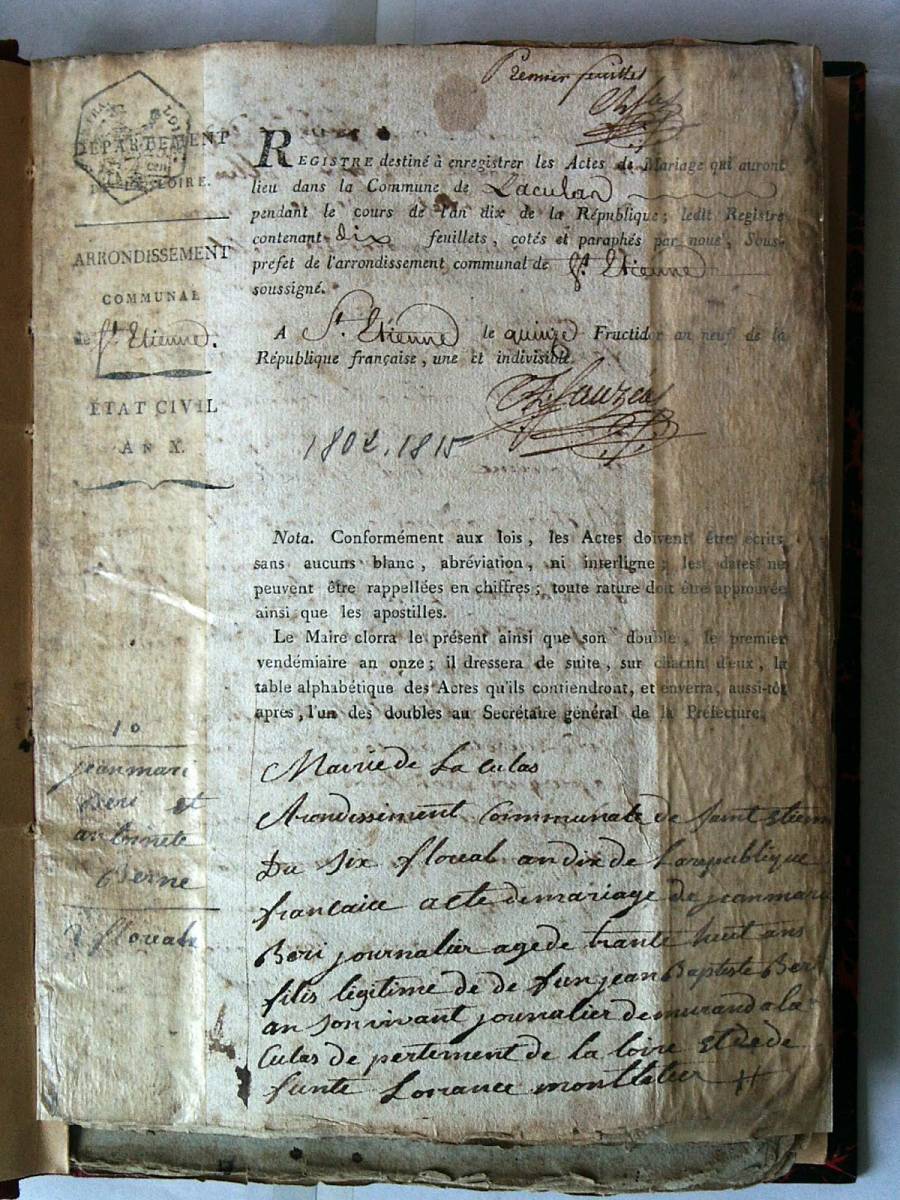 Premier feuillet
DÉPARTEMENT
LOIRE.
ARRONDISSEMENT
COMMUNAL
de St. Etienne.
ÉTAT CIVIL
AN X.
REGISTRE destiné à enregistrer les Actes de Mariage qui auront
lieu dans la Commune de Laculas
pendant le cours de l'an dix de la République; ledit Registre
contenant dix feuillets, cotés et paraphés par nous, Sous-
prefet de l'arrondissement communal de St. Etienne
soussigné.
A St. Etienne le quinze Fructidor an neuf de la
République française, une et indivisible.
1802. 1815
Nota. Conformément aux lois, les Actes doivent être écrits
sans aucuns blanc, abréviation, ni interligne; les dates ne
peuvent être rappellées en chiffres; toute rature doit être approuvée
ainsi que les apostilles.
Le Maire clorra le présent ainsi que son double, le premier
vendémiaire an onze; il dressera de suite, sur chacun d'eux, la
table alphabétique des Actes qu'ils contiendront, et enverra, aussi-tôt
après, l'un des doubles au Secrétaire général de la Préfecture.
10
jeanmari
Beri et
antoinete
floreal
Mairie de La culas
Arondissement Communale de Saint Etienne
Du six floreal an dix de La republique
francaice acte de mariage de jeanmari
Beri journalier age de trante huit ans
filis ligitime de de fun jean Baptiste Beri
an son vivant journalier demurand a la
Culas de pertement de la loire et de de
funte